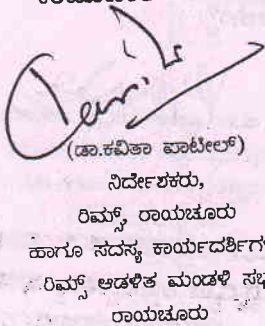 (ಡಾ.ಕವಿತಾ ಪಾಟೀಲ್)
ನಿರ್ದೇಶಕರು,
ರಿಮ್ಸ್, ರಾಯಚೂರು
ಹಾಗೂ ಸದಸ್ಯ ಕಾರ್ಯದರ್ಶಿಗಳ
ರಿಮ್ಸ್ ಆಡಳಿತ ಮಂಡಳಿ ಸಭ
ರಾಯಚೂರು